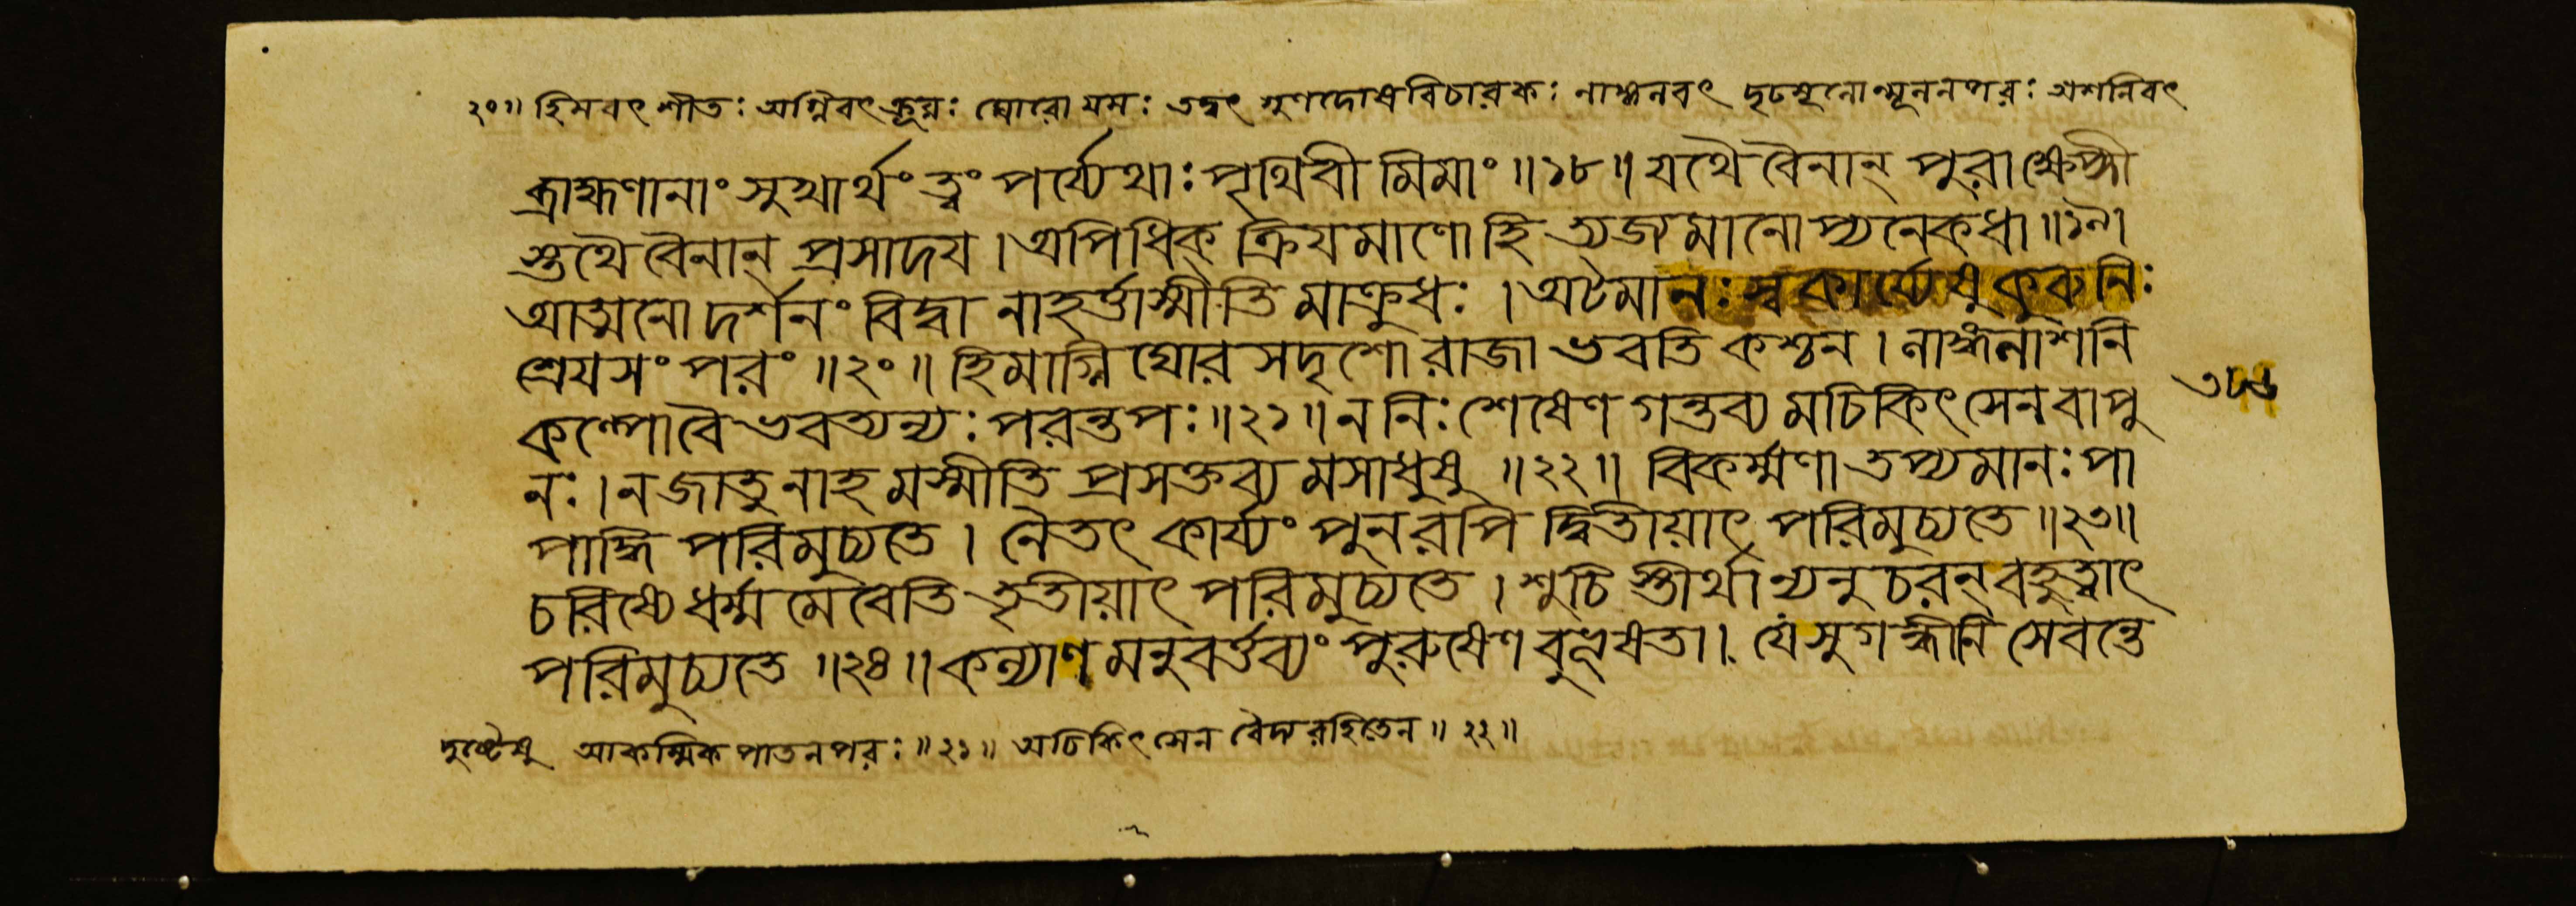 ২০॥ হিমবৎ শীতঃ অগ্নিবৎ ক্রূরঃ ঘোরো যমঃ তদ্বৎ গুণদোষবিচারকঃ লাঙ্গলবৎ দৃঢমূলোন্মূলনপরঃ অশনিবৎ
ব্রাহ্মণানাং সুখার্থং ত্বং পর্য্যেথাঃ পৃথিবী মিমাং ॥১৮॥ যথৈ বৈনান্ পুরা ক্ষেপ্সী
স্তথৈ বৈনান্ প্রসাদয । অপি ধিক্ ক্রিযমাণো হি ত্যজ্যমানো প্যনেকধা ॥১৯।
আত্মনো দর্শনং বিদ্বা নাহর্ত্তাস্মীতি মাক্রুধঃ । অটমানঃ স্বকার্য্যেষু কুরু নিঃ
শ্রেযসং পরং ॥২০॥ হিমাগ্নি ঘোর সদৃশো রাজা ভবতি কশ্চন । লাঙ্গলাশনি
কল্পো বৈ ভবত্যন্যঃ পরন্তপঃ ॥২১॥ ন নিঃশেষেণ গন্তব্য মচিকিৎসেন বা পু
নঃ । ন জাতু নাহ মস্মীতি প্রসক্তব্য মসাধুষু ॥২২॥ বিকর্ম্মণা তপ্যমানঃ পা
পাদ্ধি পরিমুচ্যতে । নৈতৎ কার্য্যং পুনরপি দ্বিতীয়াৎ পরিমুচ্যতে ॥২৩॥
চরিষ্যে ধর্ম্ম মেবেতি তৃতীয়াৎ পরিমুচ্যতে । শুচি স্তীর্থান্যনুচরন্ বহুত্বাৎ
পরিমুচ্যতে ॥২৪॥ কল্যাণ মনুবর্ত্তব্যং পুরুষেণ বুভূষতা । যে সুগন্ধীনি সেবন্তে
৩৮৬
দুষ্টেষু আকস্মিক পাতনপরঃ ॥২১॥ অচিকিৎসেন বৈদ্য রহিতেন ॥ ২২॥